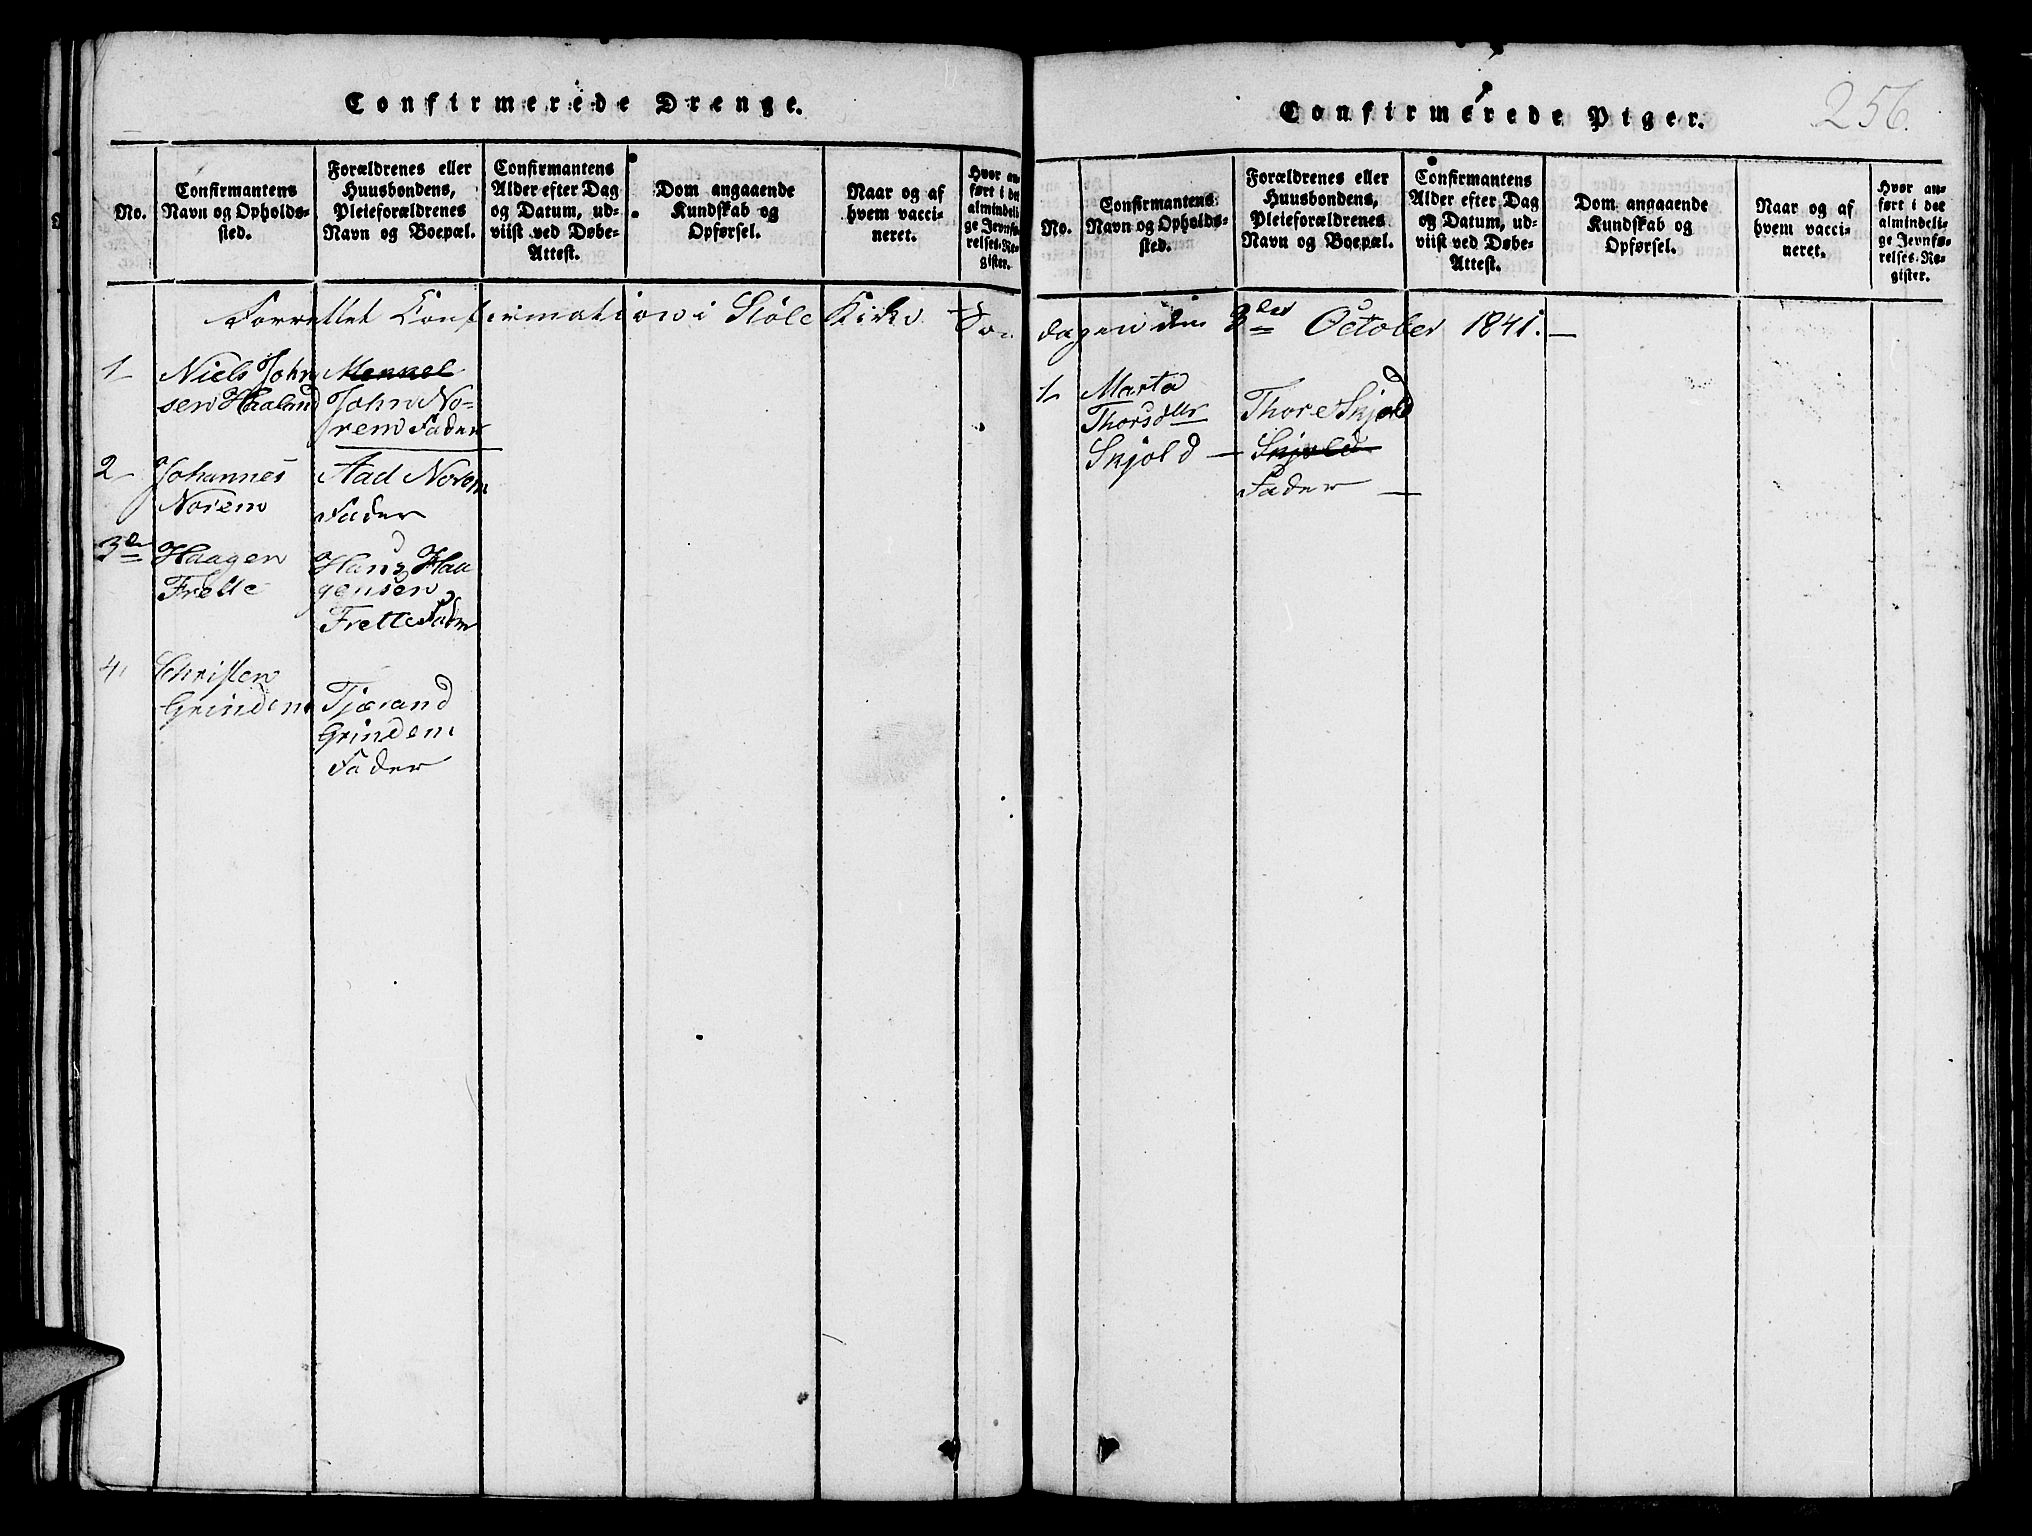 Confirmerede Drenge.
No.
Confirmantens
Navn og Opholds-
sted.
Forældrenes eller
Huusbondens,
Pleieforældrenes
Navn og Boepæl.
Confirmantens
Alder efter Dag
og Datum, ud-
viist ved Døbe-
Attest.
Dom angaaende
Kundskab og
Opførsel.
Naar og af
hvem vacci-
neret.
Hvor an-
ført i det
almindeli-
ge Jevnfø-
relses-Re-
gister.
Forrettet Confirmation i Skole Kirke Søn
1 Niels John
sen Haaland
John No-
rem Fader
2 Johannes
Norem
Aad Norem
Fader
3de Haagen
Frette
Hans Haa
gensen
Frette Fader
4, Christen
Grindem
Tjærand
Grindem
Fader
Confirmerede Piger.
256.
No.
Confirmantens
Navn og Opholds-
sted.
Forældrenes eller
Huusbondens,
Pleieforældrenes
Navn og Boepæl.
Confirmantens
Alder efter Dag
og Datum, ud-
viist ved Døbe-
Attest.
Dom angaaende
Kundskab og
Opførsel.
Naar og af
hvem vacci-
neret.
Hvor an-
ført i det
almindeli-
ge Jevnfø-
relses-Re-
gister.
dagen den 3die October 1841.
1 Marta
Thorsdtr
Skjold
Thore Skjold
Skjold
Fader